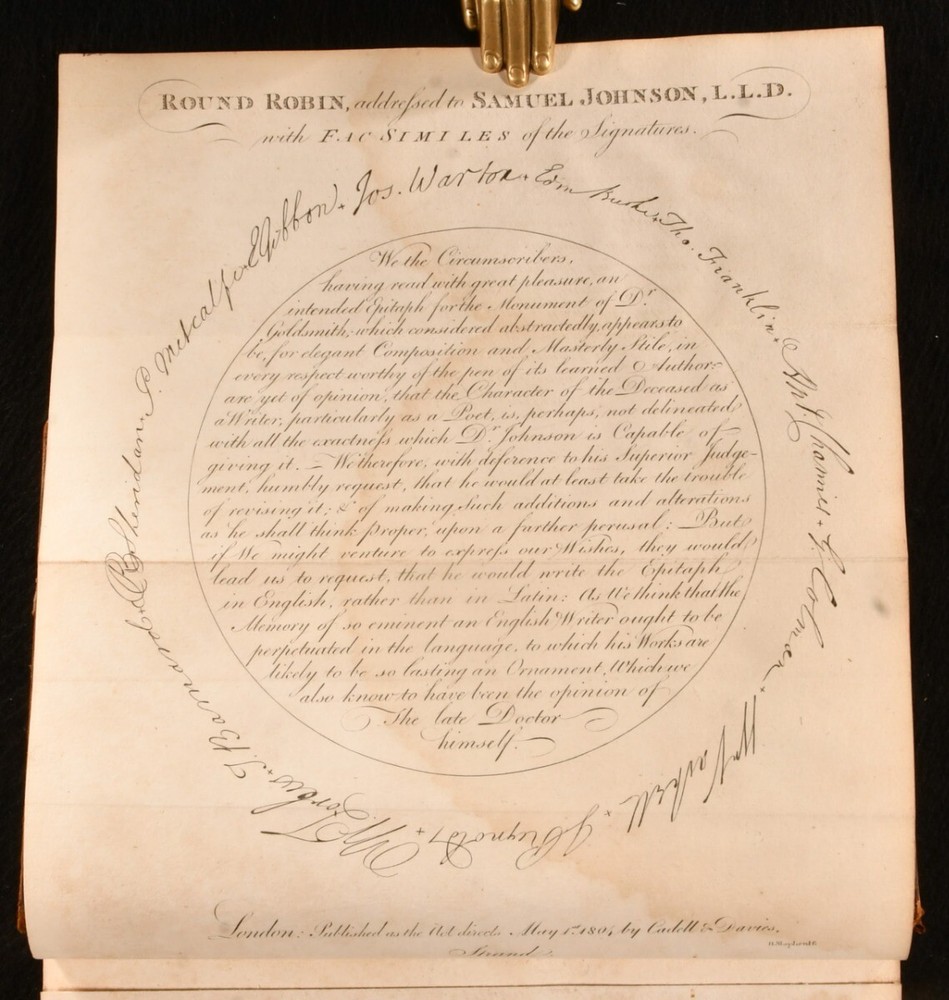 ROUND ROBIN, addressed to SAMUEL JOHNSON, L.L.D.
with FAC SIMILES of the Signatures.
E Gibbon + Jos. Warton + Edm Burke + Tho. Franklin +
Ant Chamier + G. Colman +
W Vashell + J Reynolds +
W Forbes + T Barnard + R B Sheridan + P. Metcalfe +
We the Circumscribers,
having read with great pleasure, an
intended Epitaph for the Monument of Dr.
Goldsmith, which considered abstractedly, appears to
be, for elegant Composition and Masterly Stile, in
every respect worthy of the pen of its learned Author;
are yet of opinion, that the Character of the Deceased as
a Writer, particularly as a Poet, is, perhaps, not delineated
with all the exactness which Dr. Johnson is Capable of
giving it. — We therefore, with deference to his Superior Judge-
ment, humbly request, that he would at least take the trouble
of revising it; & of making Such additions and alterations
as he shall think proper, upon a farther perusal: But
if We might venture to express our Wishes, they would
lead us to request, that he would write the Epitaph
in English, rather than in Latin: As We think that the
Memory of so eminent an English Writer ought to be
perpetuated in the language, to which his Works are
likely to be so lasting an Ornament, Which we
also know to have been the opinion of
The late Doctor
himself.
London: Published as the Act directs May 1st 1804, by Cadell & Davies,
Strand.